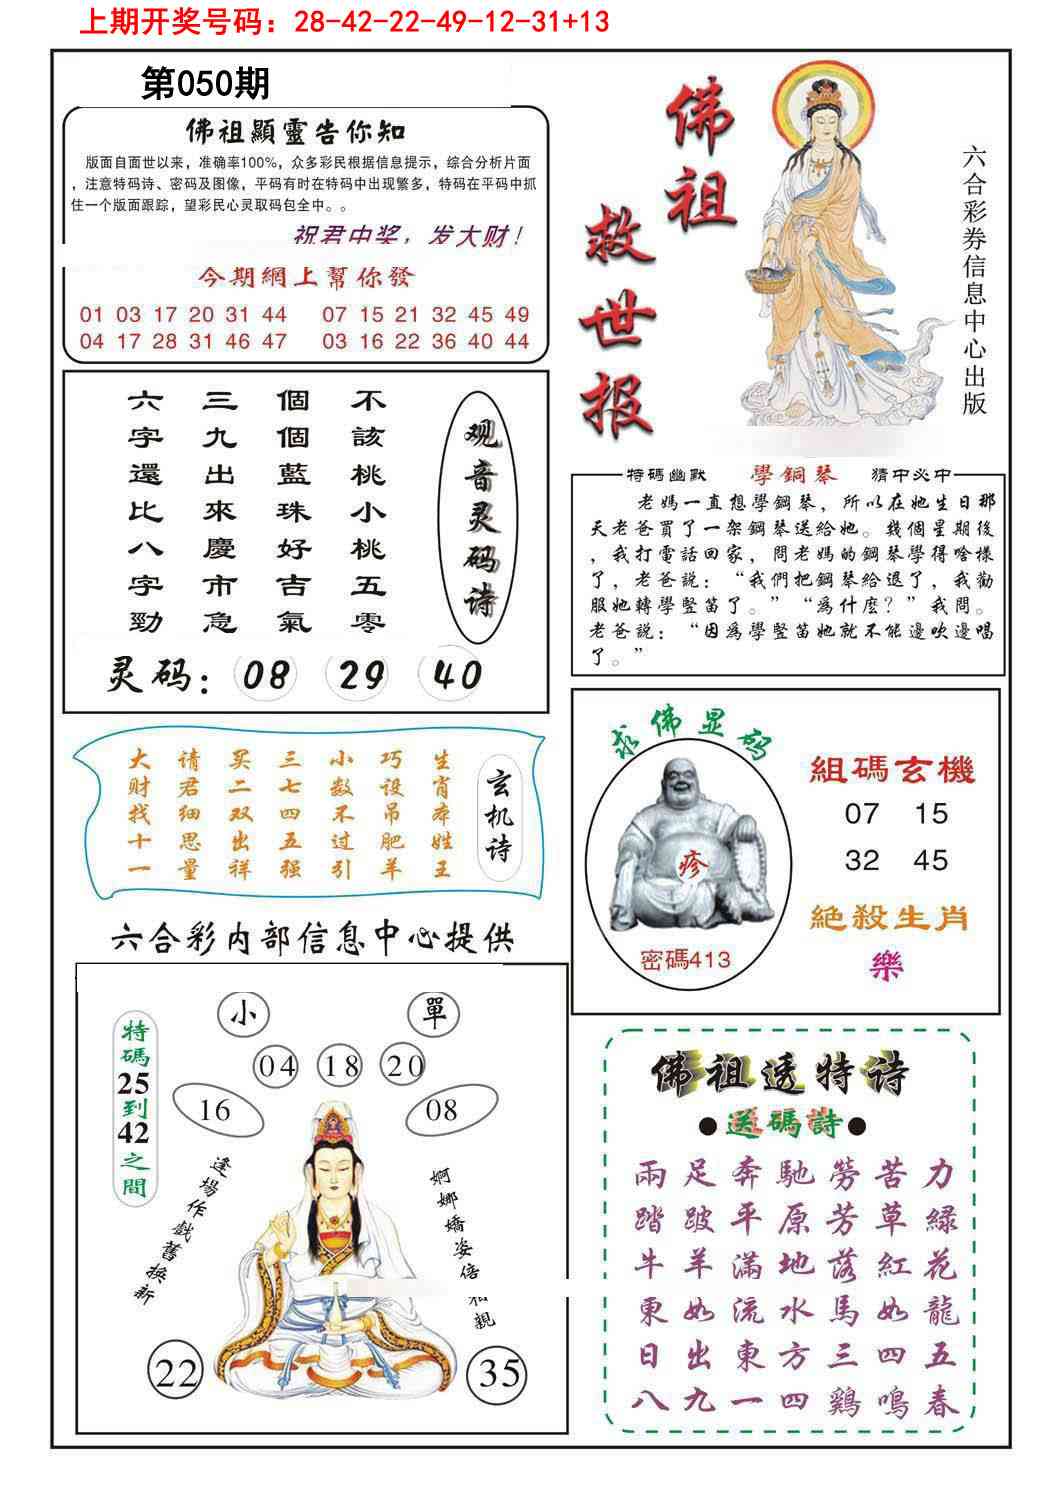 上期开奖号码：28-42-22-49-12-31+13
第050期
佛祖顯靈告你知
版面自面世以来，准确率100%，众多彩民根据信息提示，综合分析片面
，注意特码诗、密码及图像，平码有时在特码中出现繁多，特码在平码中抓
住一个版面跟踪，望彩民心灵取码包全中。。
祝君中奖，发大财！
今期網上幫你發
01 03 17 20 31 44 07 15 21 32 45 49
04 17 28 31 46 47 03 16 22 36 40 44
佛祖
救世报
六合彩券信息中心出版
观音灵码诗
不該桃小桃五零
個個藍珠好吉氣
三九出來慶市急
六字還比八字勁
灵码：08 29 40
特碼幽默 學鋼琴 猜中必中
老媽一直想學鋼琴，所以在她生日那
天老爸買了一架鋼琴送給她。幾個星期後
，我打電話回家，問老媽的鋼琴學得啥樣
了，老爸説：“我們把鋼琴給退了，我勸
服她轉學豎笛了。”“為什麽？”我問。
老爸説：“因為學豎笛她就不能邊吹邊唱
了。”
玄机诗
生肖本姓王
巧设吊肥羊
小数不过引
三七四五强
买二双出祥
请君细思量
大财找十一
求佛显码
疹
密碼413
組碼玄機
07 15
32 45
絕殺生肖
樂
六合彩内部信息中心提供
特碼25到42之間
小 單
04 18 20
16 08
逢場作戲舊換新
婀娜嬌姿倍和親
22 35
佛祖透特诗
●送碼詩●
兩足奔馳勞苦力
踏跛平原芳草緑
牛羊滿地落紅花
東如流水馬如龍
日出東方三四五
八九一四鷄鳴春